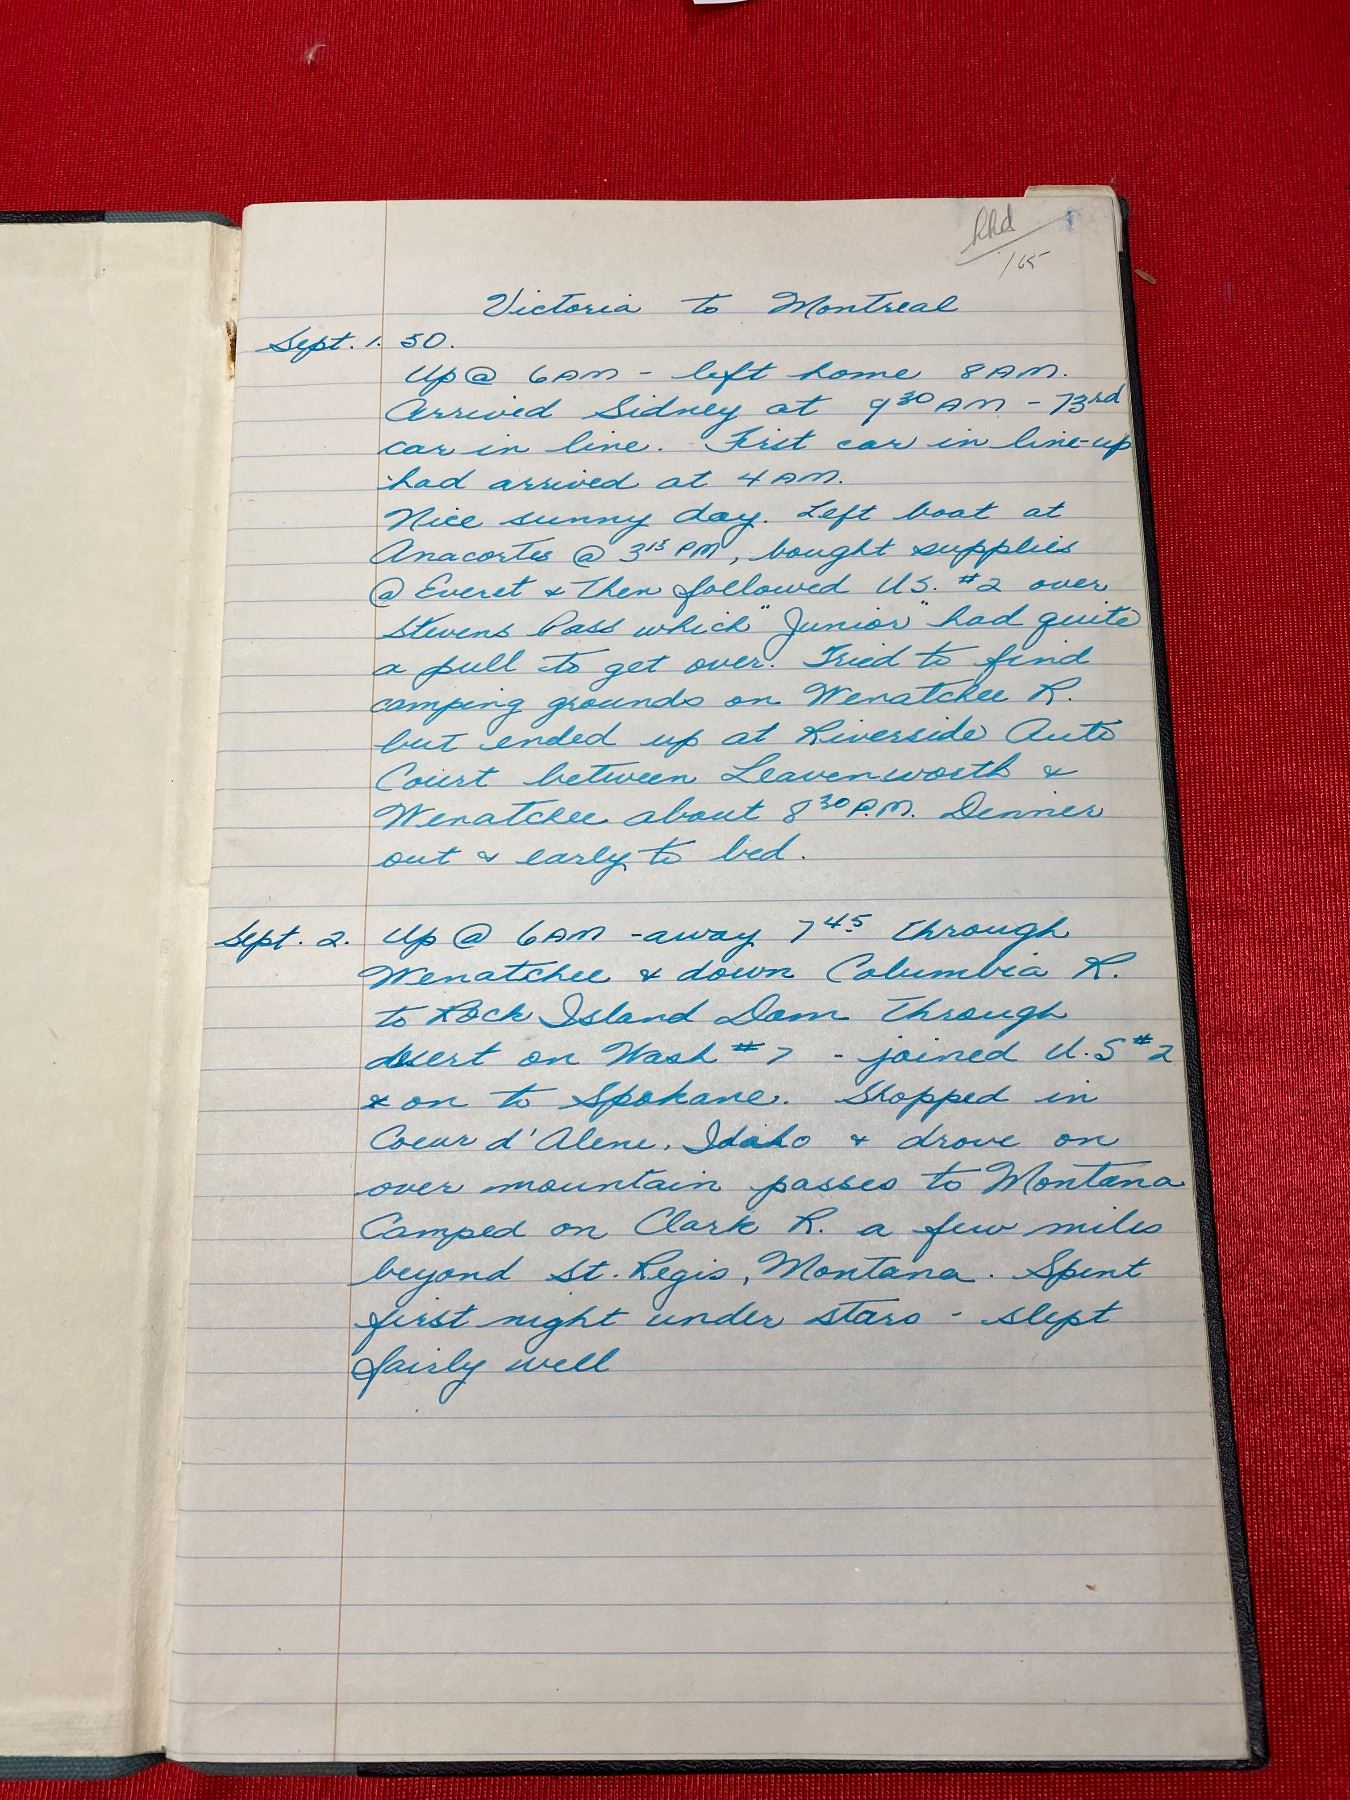 hhd
/65
Victoria to Montreal
Sept. 1. 50.
Up @ 6 AM - left home 8 AM.
Arrived Sidney at 9 30 AM - 73rd
car in line. First car in line-up
had arrived at 4 AM.
Nice sunny day. Left boat at
Anacortes @ 3 15 PM, bought supplies
@ Everet & then followed U.S. #2 over
Stevens Pass which "Junior" had quite
a pull to get over. Tried to find
camping grounds on Wenatchee R.
but ended up at Riverside Auto
Court between Leavenworth &
Wenatchee about 8 30 P.M. Dinner
out & early to bed.
Sept. 2. Up @ 6 AM - away 7 45 through
Wenatchee & down Columbia R.
to Rock Island Dam through
desert on Wash #7 - joined U.S #2
& on to Spokane. Shopped in
Coeur d'Alene, Idaho & drove on
over mountain passes to Montana
Camped on Clark R. a few miles
beyond St. Regis, Montana. Spent
first night under stars - slept
fairly well